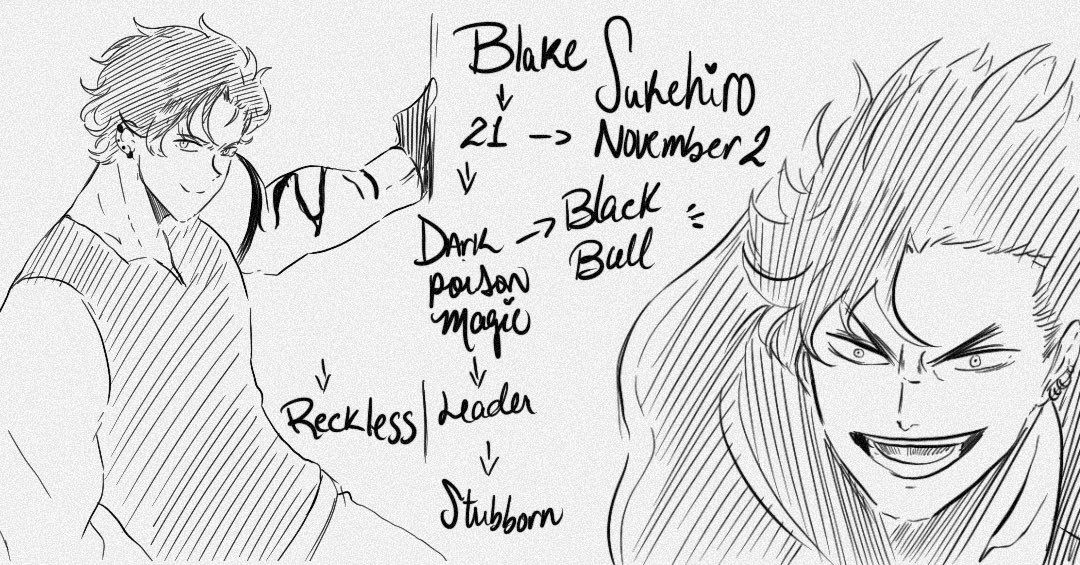 Blake
Sukehiro
21 → November 2
Dark
poison
magic
Black
Bull
Reckless | Leader
Stubborn